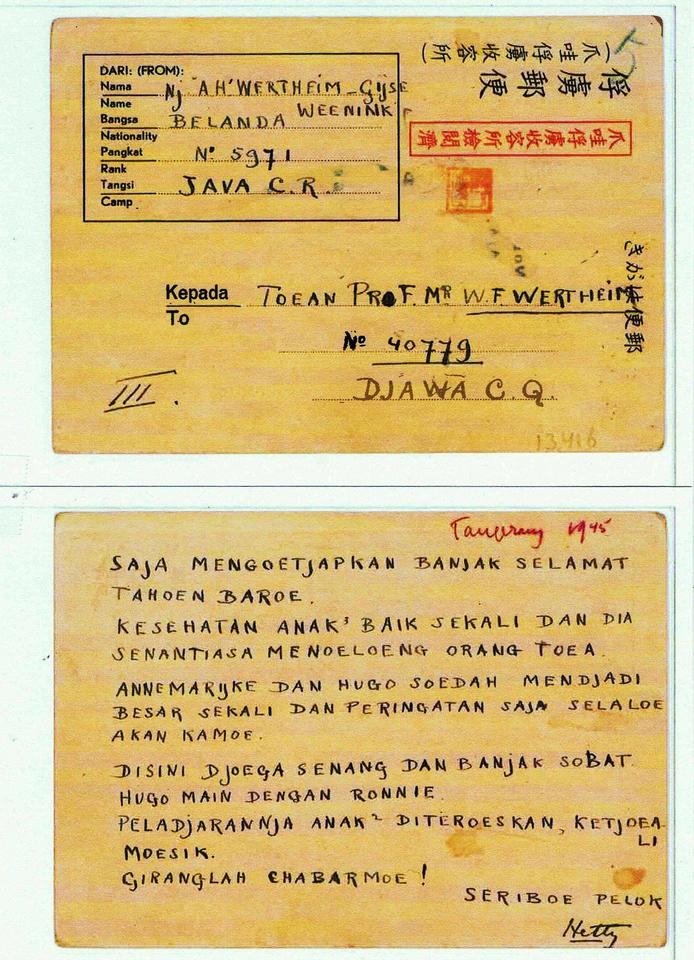 (爪哇俘虜收容所)
俘虜郵便
爪哇俘虜收容所檢閱濟
DARI: (FROM):
Nama Nj A H WERTHEIM-GIJSE
Name WEENINK
Bangsa BELANDA
Nationality
Pangkat No 5971
Rank
Tangsi JAVA C.R.
Camp
郵便はがき
Kepada TOEAN PROF. MR W.F. WERTHEIM
To
No 40779
DJAWA C.Q.
III.
13.416
Tangerang 1945
SAJA MENGOETJAPKAN BANJAK SELAMAT
TAHOEN BAROE.
KESEHATAN ANAK² BAIK SEKALI DAN DIA
SENANTIASA MENOELOENG ORANG TOEA.
ANNEMARIJKE DAN HUGO SOEDAH MENDJADI
BESAR SEKALI DAN PERINGATAN SAJA SELALOE
AKAN KAMOE.
DISINI DJOEGA SENANG DAN BANJAK SOBAT.
HUGO MAIN DENGAN RONNIE.
PELADJARANNJA ANAK² DITEROESKAN, KETJOEA-
LI
MOESIK.
GIRANGLAH CHABARMOE!
SERIBOE PELOK
Hetty